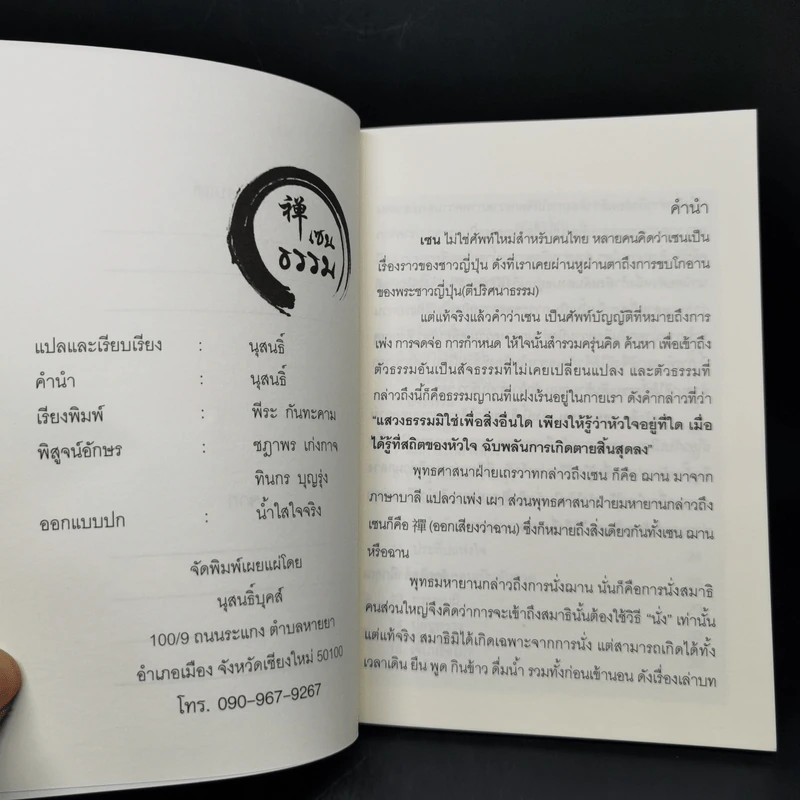 禅
เซน
ธรรม
แปลและเรียบเรียง : นุสนธิ์
คำนำ : นุสนธิ์
เรียงพิมพ์ : พีระ กันทะคาม
พิสูจน์อักษร : ชฎาพร เก่งกาจ
ทินกร บุญรุ่ง
ออกแบบปก : น้ำใสใจจริง
จัดพิมพ์เผยแผ่โดย
นุสนธิ์บุคส์
100/9 ถนนระแกง ตำบลหายยา
อำเภอเมือง จังหวัดเชียงใหม่ 50100
โทร. 090-967-9267
คำนำ
เซน ไม่ใช่ศัพท์ใหม่สำหรับคนไทย หลายคนคิดว่าเซนเป็น
เรื่องราวของชาวญี่ปุ่น ดังที่เราเคยผ่านหูผ่านตาถึงการขบโกอาน
ของพระชาวญี่ปุ่น(ตีปริศนาธรรม)
แต่แท้จริงแล้วคำว่าเซน เป็นศัพท์บัญญัติที่หมายถึงการ
เพ่ง การจดจ่อ การกำหนด ให้ใจนั้นสำรวมครุ่นคิด ค้นหา เพื่อเข้าถึง
ตัวธรรมอันเป็นสัจธรรมที่ไม่เคยเปลี่ยนแปลง และตัวธรรมที่
กล่าวถึงนี้ก็คือธรรมญาณที่แฝงเร้นอยู่ในกายเรา ดังคำกล่าวที่ว่า
“แสวงธรรมมิใช่เพื่อสิ่งอื่นใด เพียงให้รู้ว่าหัวใจอยู่ที่ใด เมื่อ
ได้รู้ที่สถิตของหัวใจ ฉับพลันการเกิดตายสิ้นสุดลง”
พุทธศาสนาฝ่ายเถรวาทกล่าวถึงเซน ก็คือ ฌาน มาจาก
ภาษาบาลี แปลว่าเพ่ง เผา ส่วนพุทธศาสนาฝ่ายมหายานกล่าวถึง
เซนก็คือ 禪 (ออกเสียงว่าฉาน) ซึ่งก็หมายถึงสิ่งเดียวกันทั้งเซน ฌาน
หรือฉาน
พุทธมหายานกล่าวถึงการนั่งฌาน นั่นก็คือการนั่งสมาธิ
คนส่วนใหญ่จึงคิดว่าการจะเข้าถึงสมาธินั้นต้องใช้วิธี “นั่ง” เท่านั้น
แต่แท้จริง สมาธิมิได้เกิดเฉพาะจากการนั่ง แต่สามารถเกิดได้ทั้ง
เวลาเดิน ยืน พูด กินข้าว ดื่มน้ำ รวมทั้งก่อนเข้านอน ดังเรื่องเล่าบท